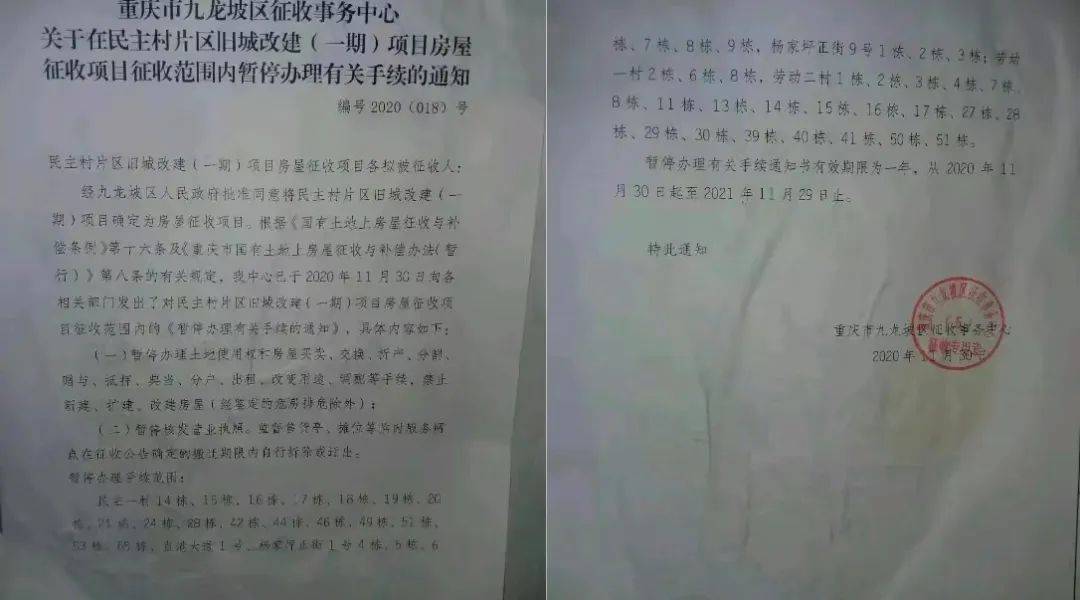 重庆市九龙坡区征收事务中心
关于在民主村片区旧城改建(一期)项目房屋
征收项目征收范围内暂停办理有关手续的通知
编号2020(018)号
民主村片区旧城改建(一期)项目房屋征收项目各拟被征收人:
经九龙坡区人民政府批准同意将民主村片区旧城改建(一
期)项目确定为房屋征收项目。根据《国有土地上房屋征收与补
偿条例》第十六条及《重庆市国有土地上房屋征收与补偿办法(暂
行)》第八条的有关规定,我中心已于2020年11月30日向各
相关部门发出了对民主村片区旧城改建(一期)项目房屋征收项
目征收范围内的《暂停办理有关手续的通知》,具体内容如下:
(一)暂停办理土地使用权和房屋买卖、交换、析产、分割、
赠与、抵押、典当、分户、出租、改变用途、调配等手续,禁止
新建、扩建、改建房屋(经鉴定的危房排危除外);
(二)暂停核发营业执照。监督售货亭、摊位等临时服务网
点在征收公告确定的搬迁期限内自行拆除或迁出。
暂停办理手续范围:
民主一村14栋、15栋、16栋、17栋、18栋、19栋、20
栋、21栋、24栋、28栋、42栋、44栋、46栋、49栋、51栋、
53栋、65栋、直港大道1号、杨家坪正街1号4栋、5栋、6
栋、7栋、8栋、9栋,杨家坪正街9号1栋、2栋、3栋;劳动
一村2栋、6栋、8栋,劳动二村1栋、2栋、3栋、4栋、7栋、
8栋、11栋、13栋、14栋、15栋、16栋、17栋、27栋、28
栋、29栋、30栋、39栋、40栋、41栋、50栋、51栋。
暂停办理有关手续通知书有效期限为一年,从2020年11
月30日起至2021年11月29日止。
特此通知
重庆市九龙坡区征收事务中心
2020年11月30日